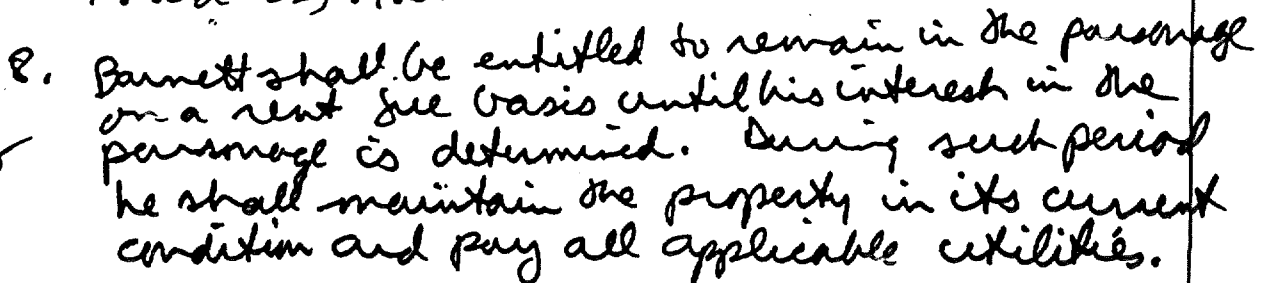 8. Barnett shall be entitled to remain in the parsonage
on a rent free basis until his interest in the
parsonage is determined. During such period
he shall maintain the property in its current
condition and pay all applicable utilities.